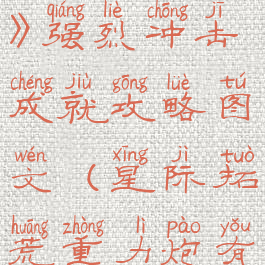 qiáng liè chōng jī
》强烈冲击
chéng jiù gōng lüè tú
成就攻略图
wén xīng jì tuò
文（星际拓
huāng zhòng lì pào yǒu
荒重力炮有